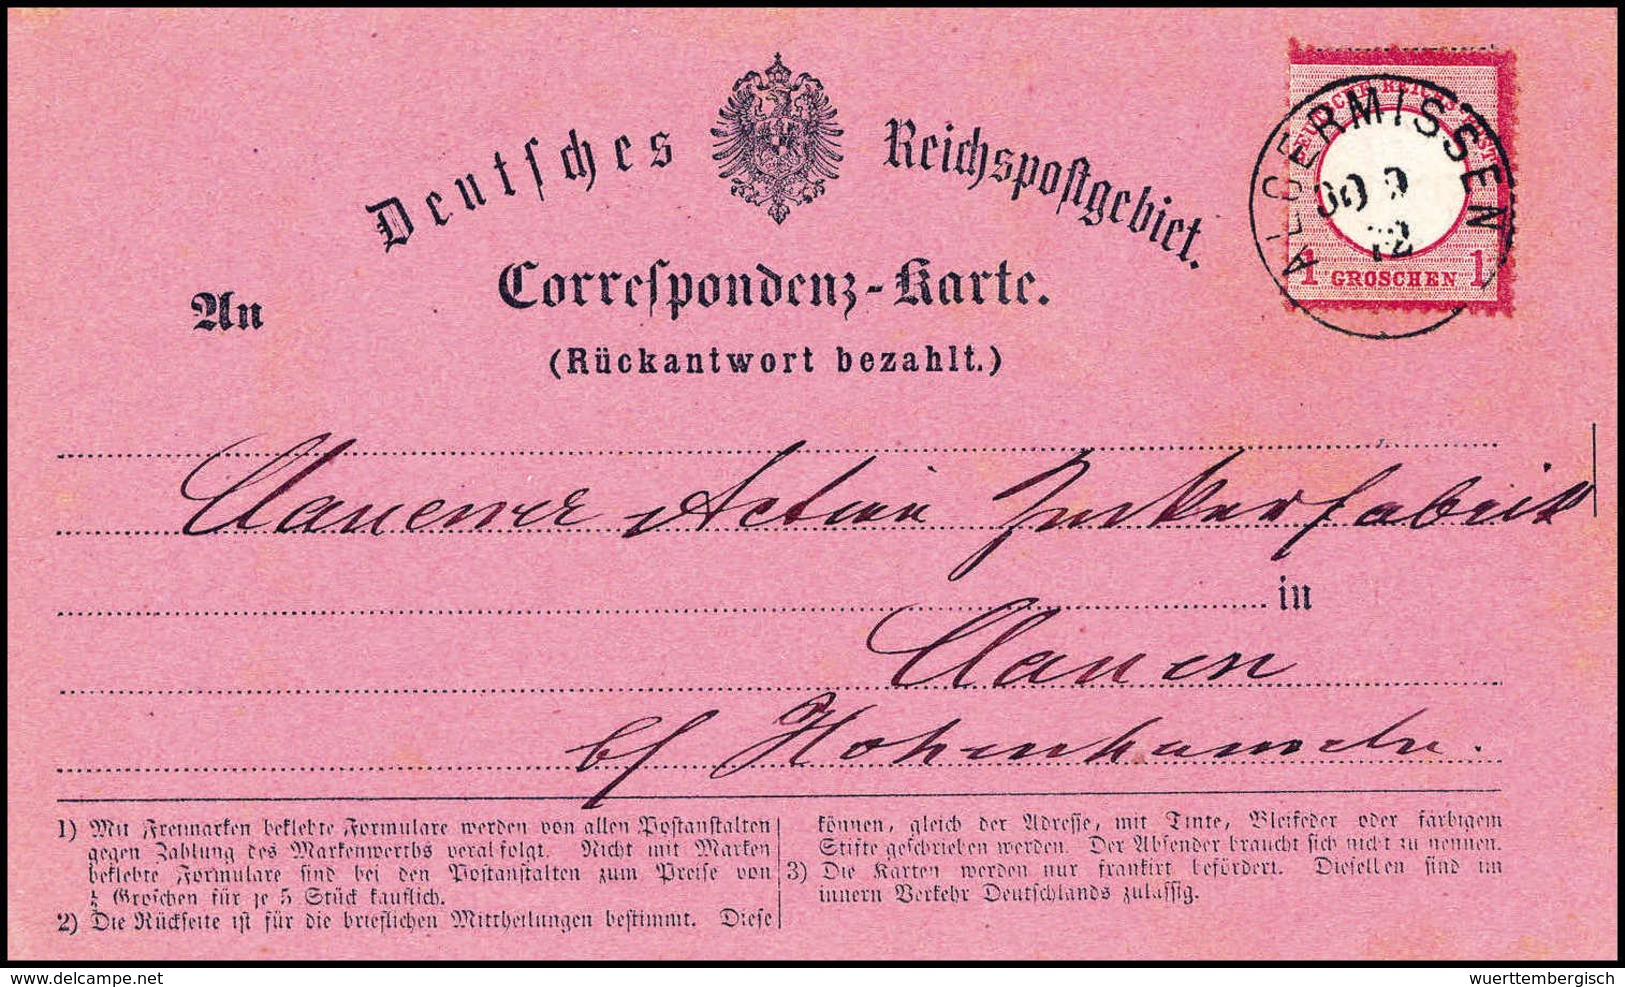 Deutsches Reichspostgebiet.
Correspondenz-Karte.
An
(Rückantwort bezahlt.)
DEUTSCHE REICHS-POST
1 GROSCHEN 1
ALGERMISSEN
Clauener Actien Zuckerfabrik
in
Clauen
b/ Hohenhameln.
1) Mit Freimarken beklebte Formulare werden von allen Postanstalten
gegen Zahlung des Markenwerths verabfolgt. Nicht mit Marken
beklebte Formulare sind bei den Postanstalten zum Preise von
½ Groschen für je 5 Stück käuflich.
2) Die Rückseite ist für die brieflichen Mittheilungen bestimmt. Diese
können, gleich der Adresse, mit Tinte, Bleifeder oder farbigem
Stifte geschrieben werden. Der Absender braucht sich nicht zu nennen.
3) Die Karten werden nur frankirt befördert. Dieselben sind im
innern Verkehr Deutschlands zulässig.
www.delcampe.net
wuerttembergisch